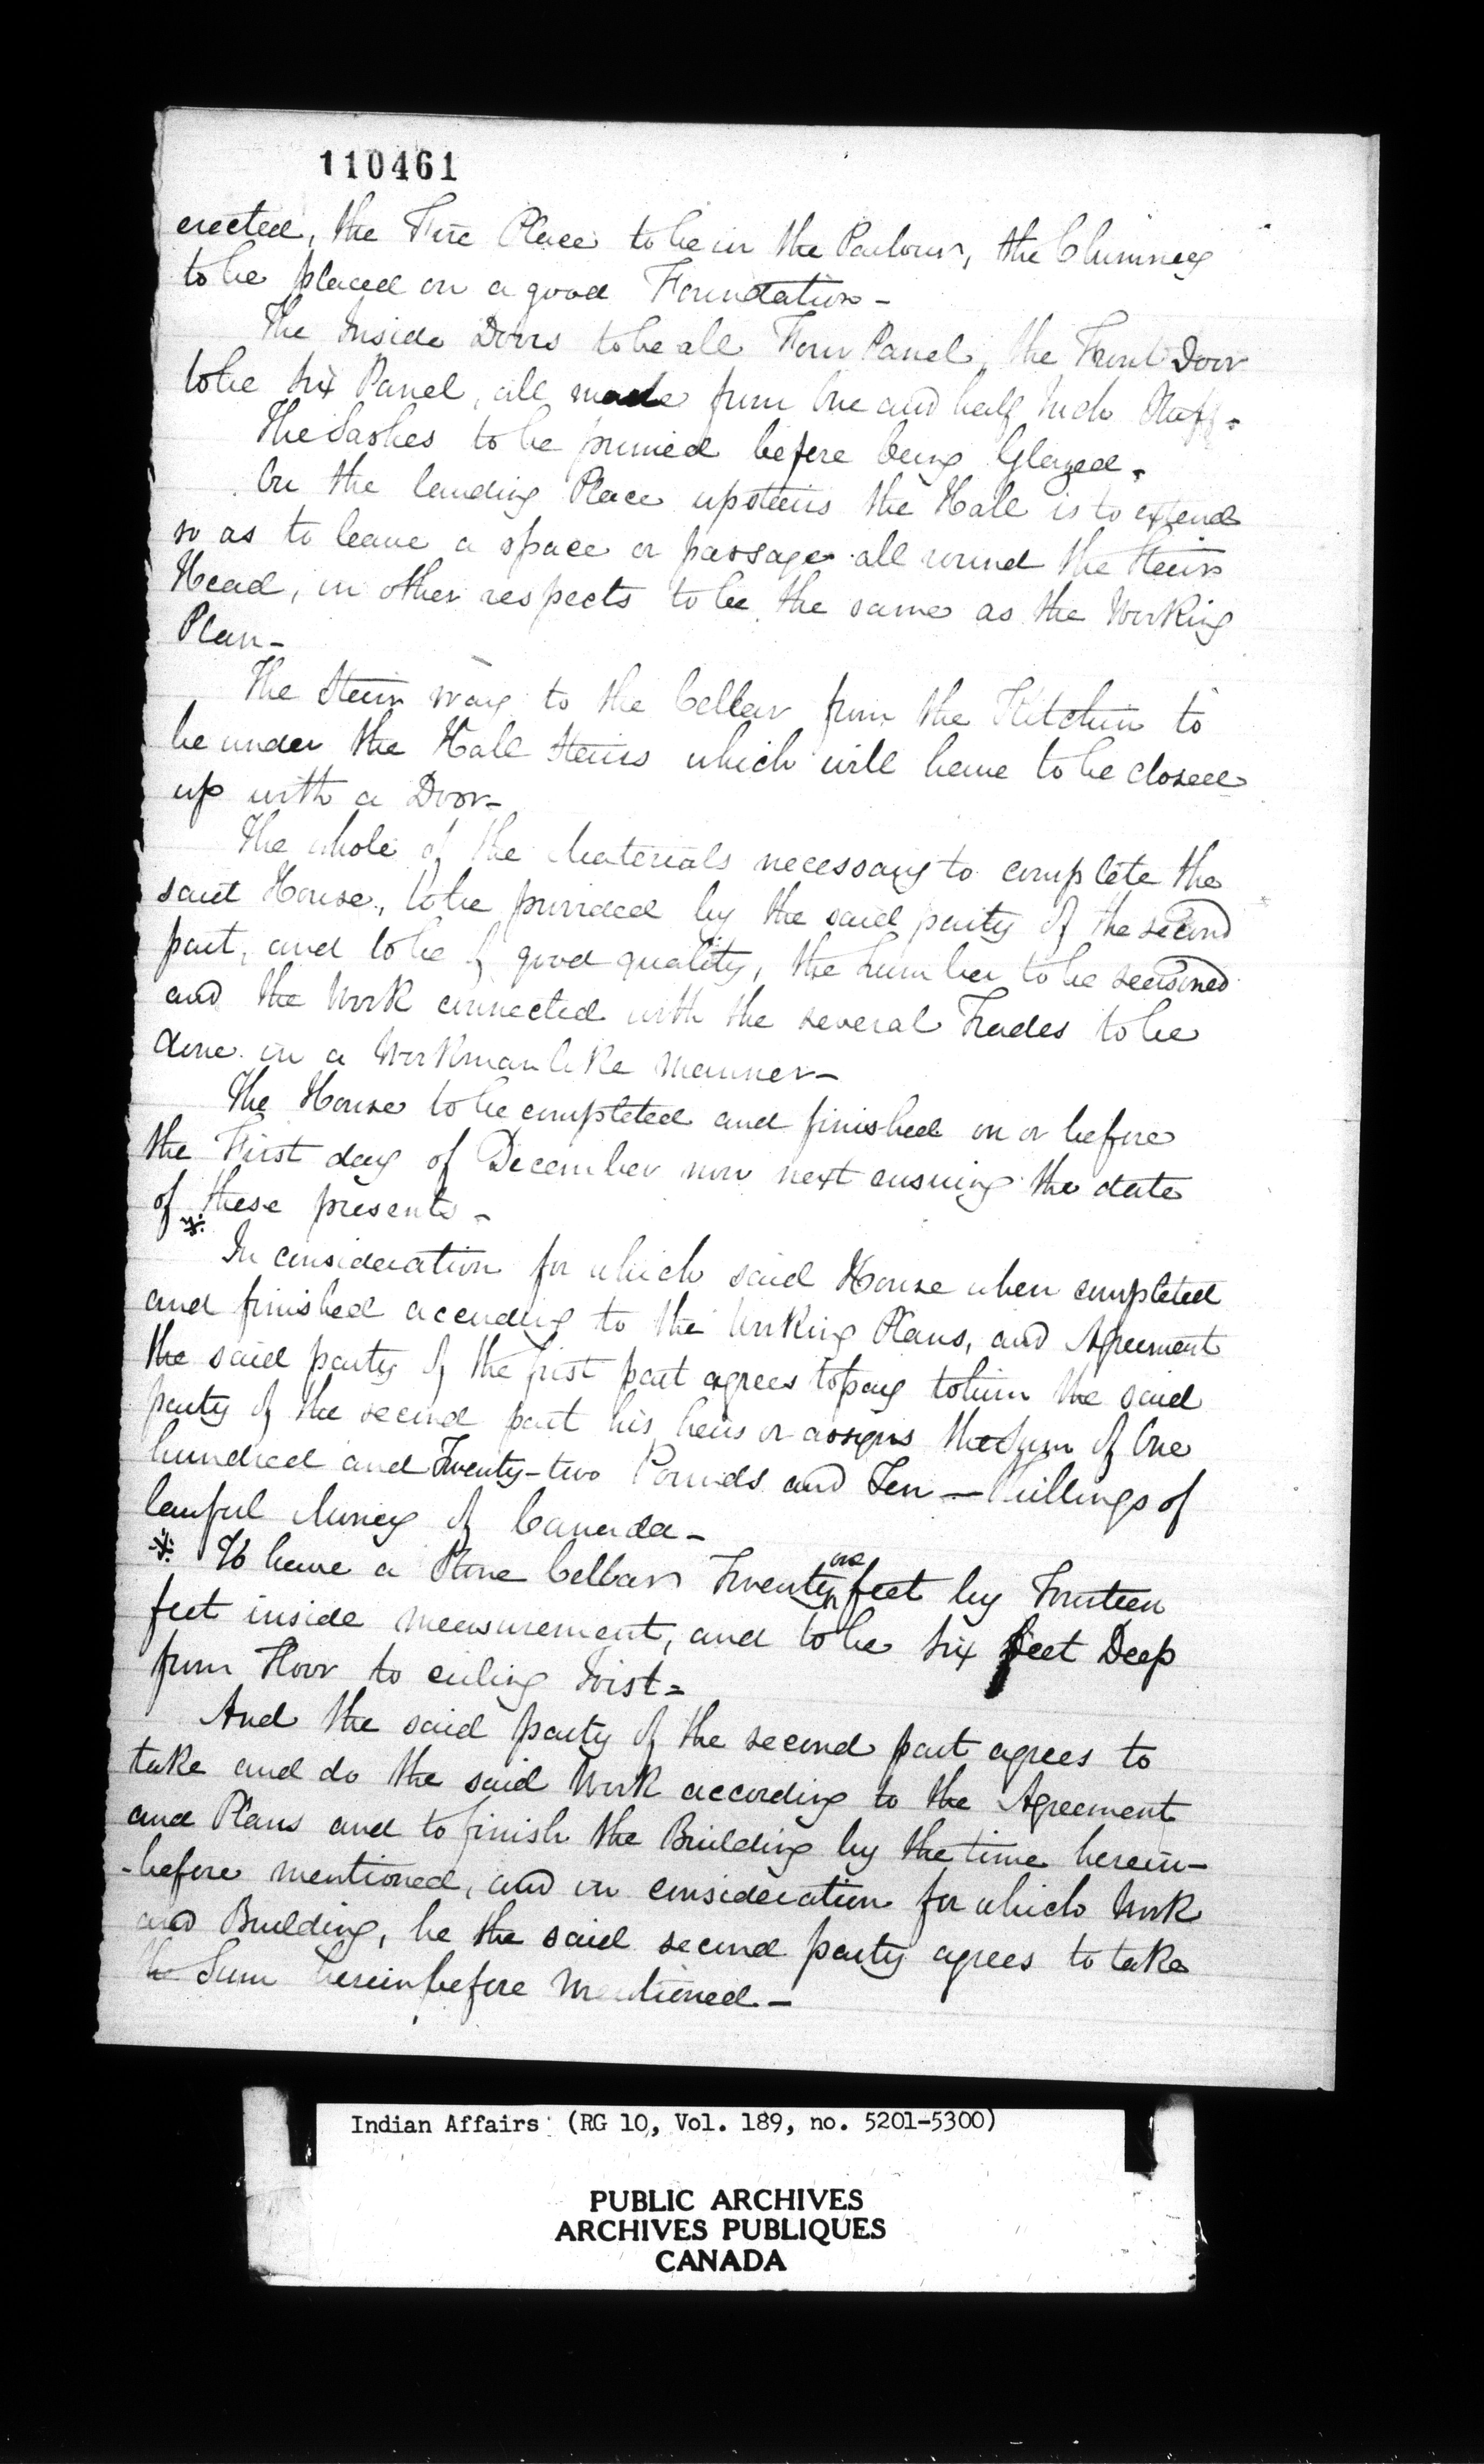 110461
erected, the Fire Place to be in the Parlour, the Chimney
to be placed on a good Foundation -
The Inside Doors to be all Four Panel, the Front Door
to be Six Panel, all made from One and half Inch Stuff -
The Sashes to be primed before being Glazed -
On the landing Place upstairs the Hall is to extend
so as to leave a space or passage all round the Stair
Head, in other respects to be the same as the Working
Plan -
The Stair way to the Cellar from the Kitchin to
be under the Hall Stairs which will have to be closed
up with a Door -
The whole of the Materials necessary to complete the
said House, to be provided by the said party of the second
part, and to be of good quality, the Lumber to be seasoned
and the Work connected with the several Trades to be
done in a Workmanlike Manner -
The House to be completed and finished on or before
the First day of December now next ensuing the date
of these presents -
* In consideration for which said House when completed
and finished according to the Working Plans, and Agreement
the said party of the first part agrees to pay to him the said
party of the second part his heirs or assigns the Sum of One
hundred and Twenty-two Pounds and Ten — Shillings of
lawful Money of Canada -
* To have a Stone Cellar Twenty one feet by Fourteen
feet inside measurement, and to be Six feet Deep
from Floor to ceiling Joist -
And the said party of the second part agrees to
take and do the said Work according to the Agreement
and Plans and to finish the Building by the time herein-
-before mentioned, and in consideration for which Work
and Building, he the said second party agrees to take
the Sum hereinbefore Mentioned -
Indian Affairs (RG 10, Vol. 189, no. 5201-5300)
PUBLIC ARCHIVES
ARCHIVES PUBLIQUES
CANADA